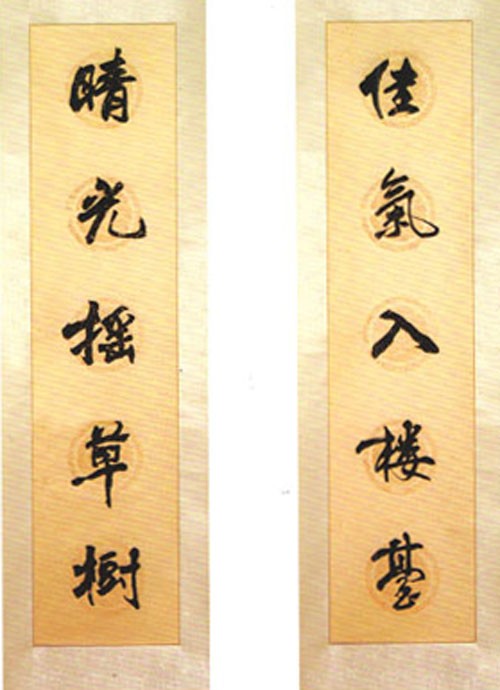 佳氣入楼臺
晴光摇草樹